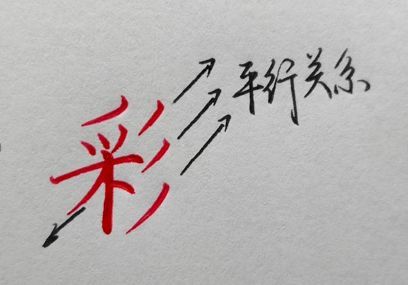 彩
平行关系